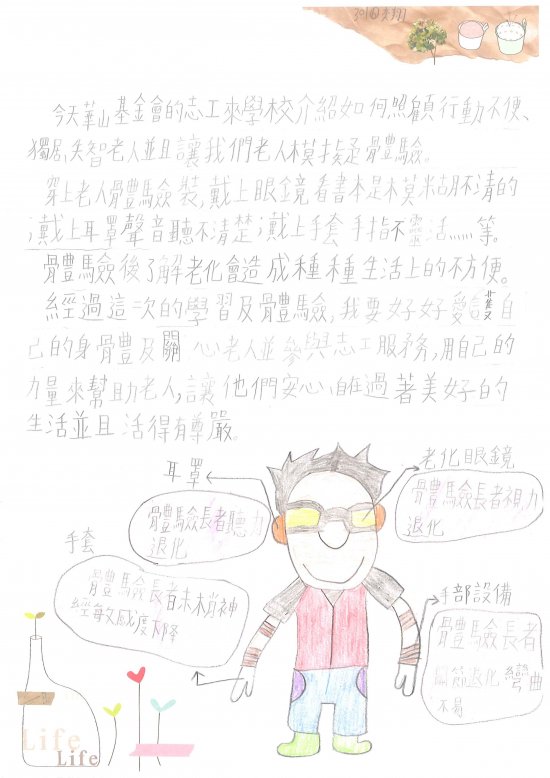 今天華山基金會的志工來學校介紹如何照顧行動不便、
獨居、失智老人並且讓我們老人模擬體驗。
穿上老人體驗裝,戴上眼鏡看書本是模糊不清的
;戴上耳罩聲音聽不清楚;戴上手套手指不靈活……等。
體驗後了解老化會造成種種生活上的不方便。
經過這次的學習及體驗,我要好好愛護自
己的身體及關心老人並參與志工服務,用自己的
力量來幫助老人,讓他們安心、自在過著美好的
生活並且活得有尊嚴。
耳罩
體驗長者聽力
退化
老化眼鏡
體驗長者視力
退化
手套
體驗長者末梢神
經敏感度下降
手部設備
體驗長者
關節退化彎曲
不易
Life
Life